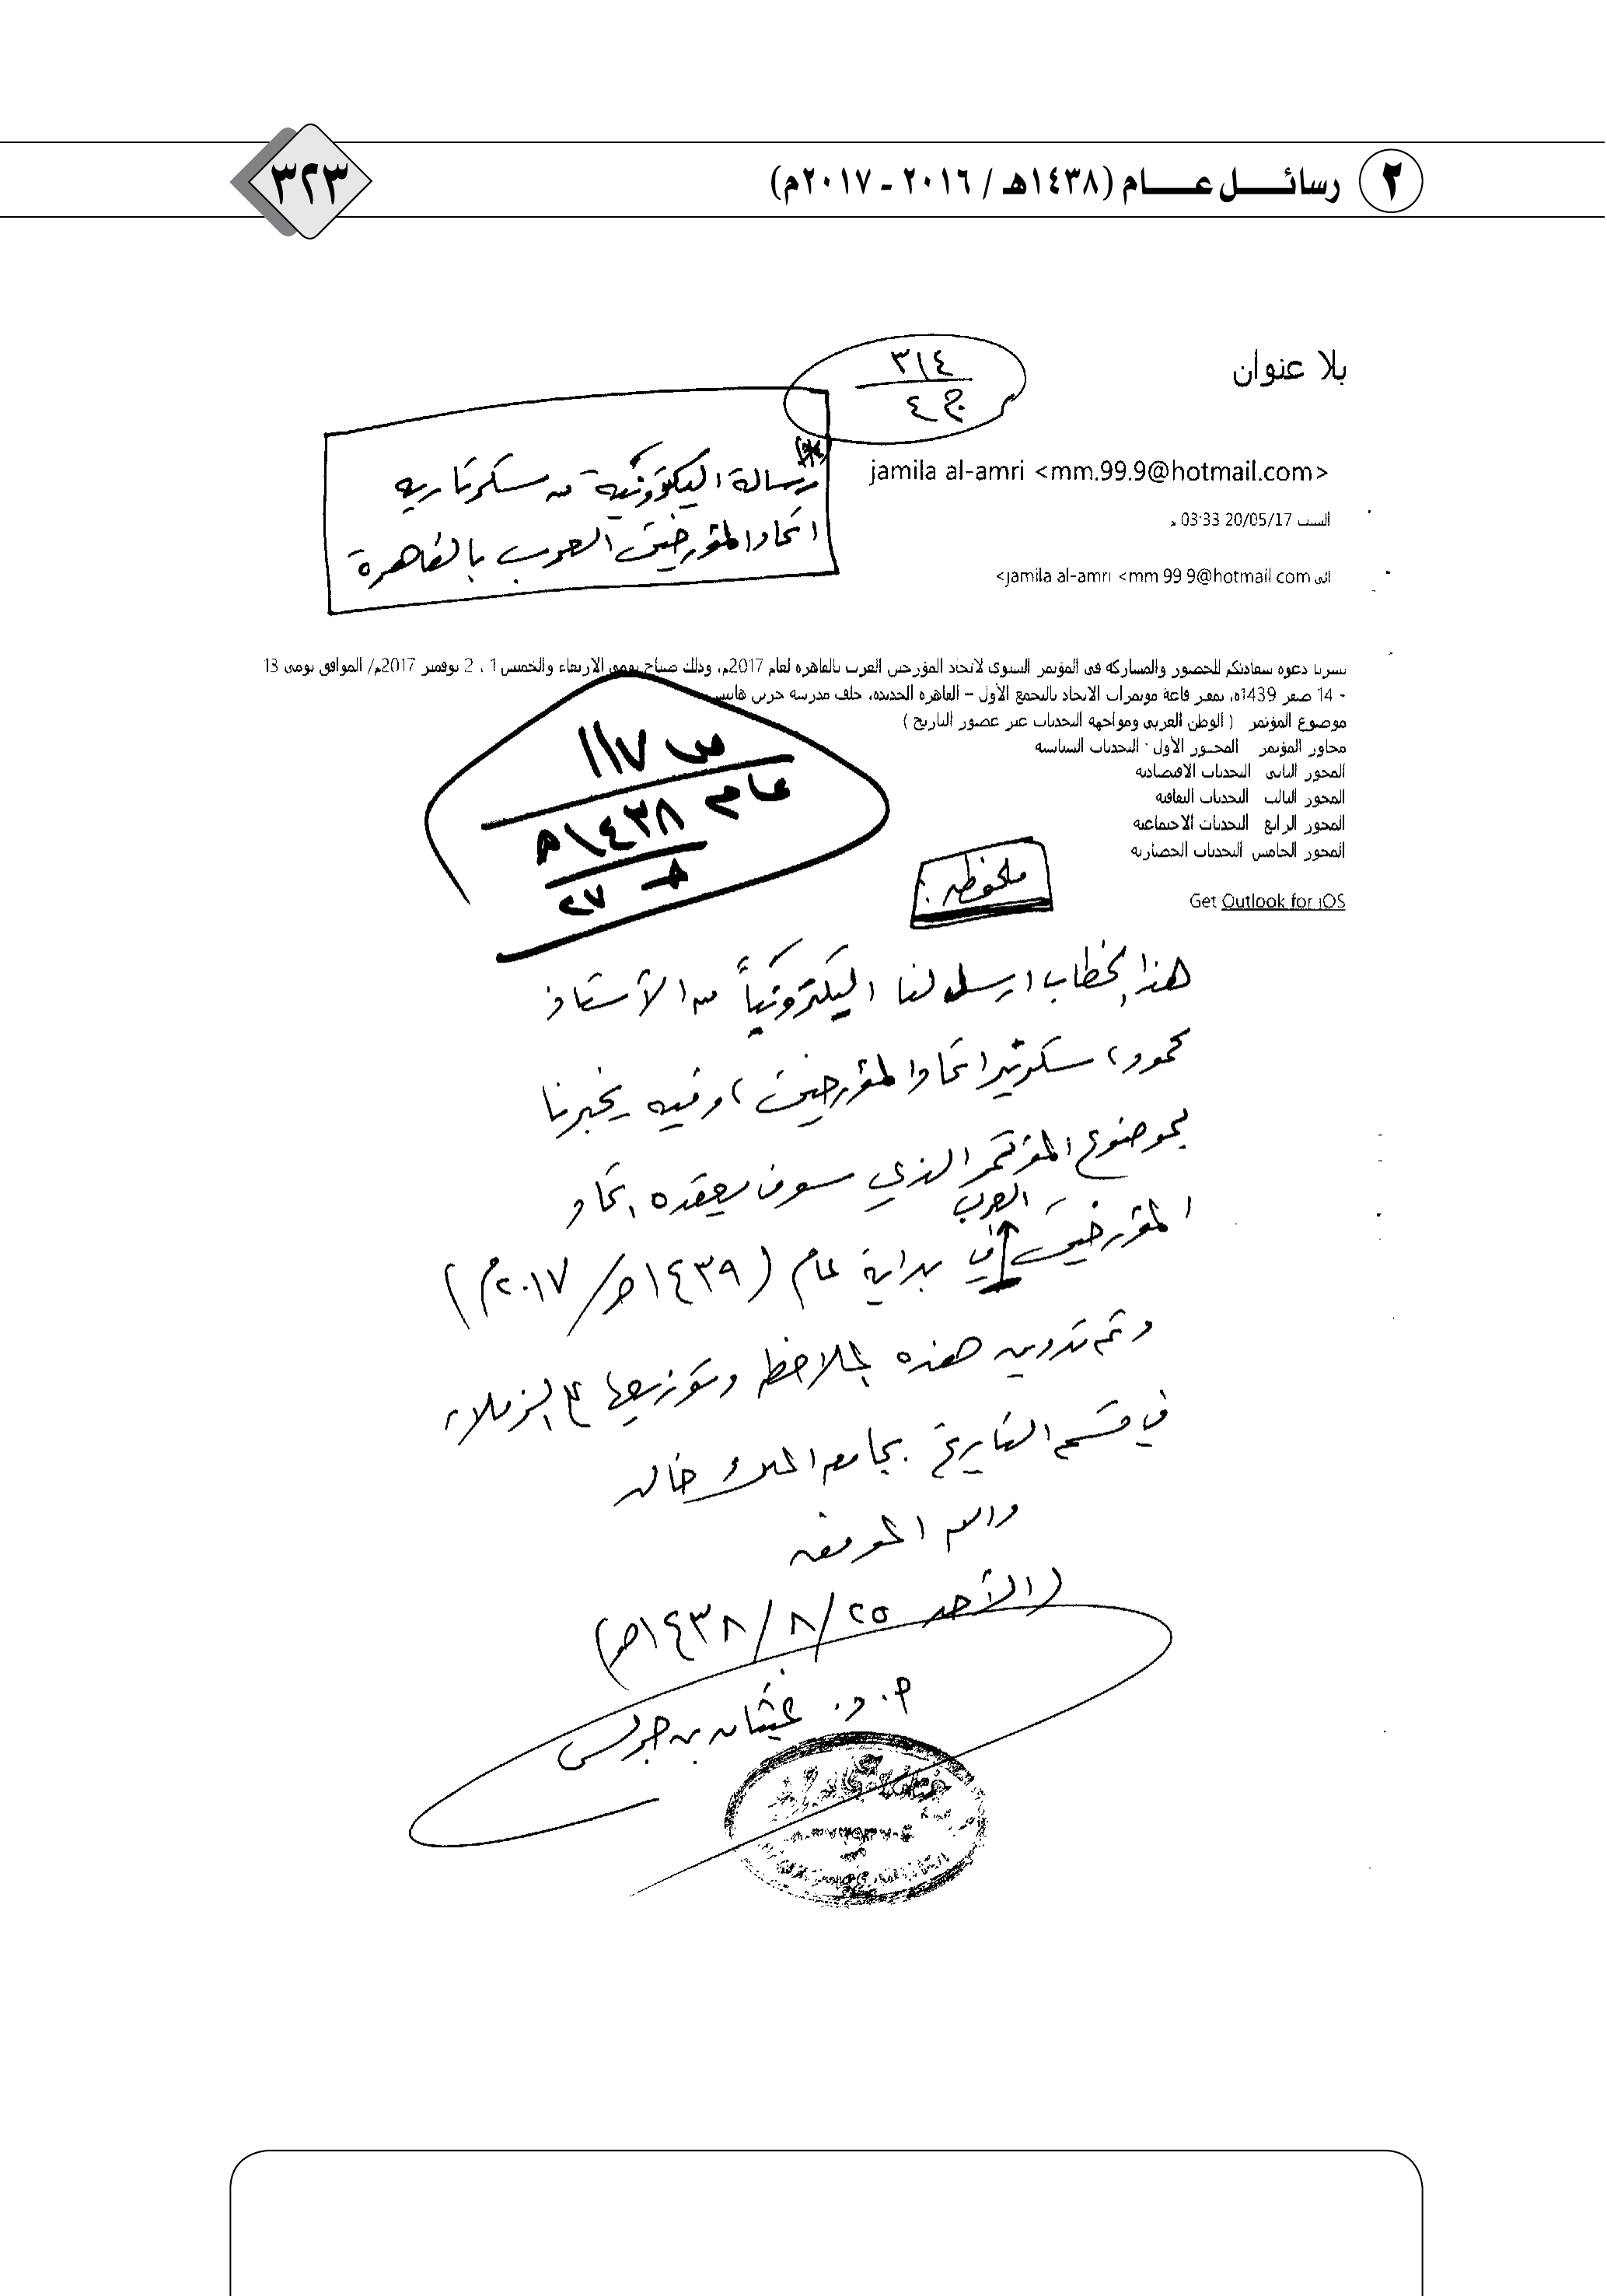 ٢ رسائل عام (١٤٣٨هـ / ٢٠١٦ - ٢٠١٧م)
٣٢٣
بلا عنوان
٣١٤
ج ٤
jamila al-amri <mm.99.9@hotmail.com>
السبت 20/05/17 03:33 م
إلى jamila al-amri <mm 99 9@hotmail com>
رسالة اليكترونية من سكرتاريه
اتحاد المؤرخين العرب بالقاهرة
يسرنا دعوة سعادتكم للحضور والمشاركة في المؤتمر السنوي لاتحاد المؤرخين العرب بالقاهرة لعام 2017م، وذلك صباح يومي الاربعاء والخميس 1 ، 2 نوفمبر 2017م/ الموافق يومي 13
- 14 صفر 1439ه، بمقر قاعة مؤتمرات الاتحاد بالتجمع الأول – القاهرة الجديدة، خلف مدرسة
موضوع المؤتمر ( الوطن العربي ومواجهة التحديات عبر عصور التاريخ )
محاور المؤتمر المحور الأول: التحديات السياسية
المحور الثاني التحديات الاقتصادية
المحور الثالث التحديات الثقافية
المحور الرابع التحديات الاجتماعية
المحور الخامس التحديات الحضارية
Get Outlook for iOS
س ١١٧
عام ١٤٣٨ه
٢٧
ملحوظه :
هذا الخطاب ارسل لنا اليكترونياً من الأستاذ
محمود، سكرتير اتحاد المؤرخين، وفيه يخبرنا
بموضوع المؤتمر الذي سوف يعقده اتحاد
المؤرخين العرب في بداية عام (١٤٣٩هـ/ ٢٠١٧م)
وتم تدوين هذه الملاحظه وتوزيعها على الزملاء
في قسم التاريخ بجامعه الملك خالد
والله الموفق
(الأحد ٢٥/ ٨/ ١٤٣٨هـ)
أ. د. غيثان بن جريس